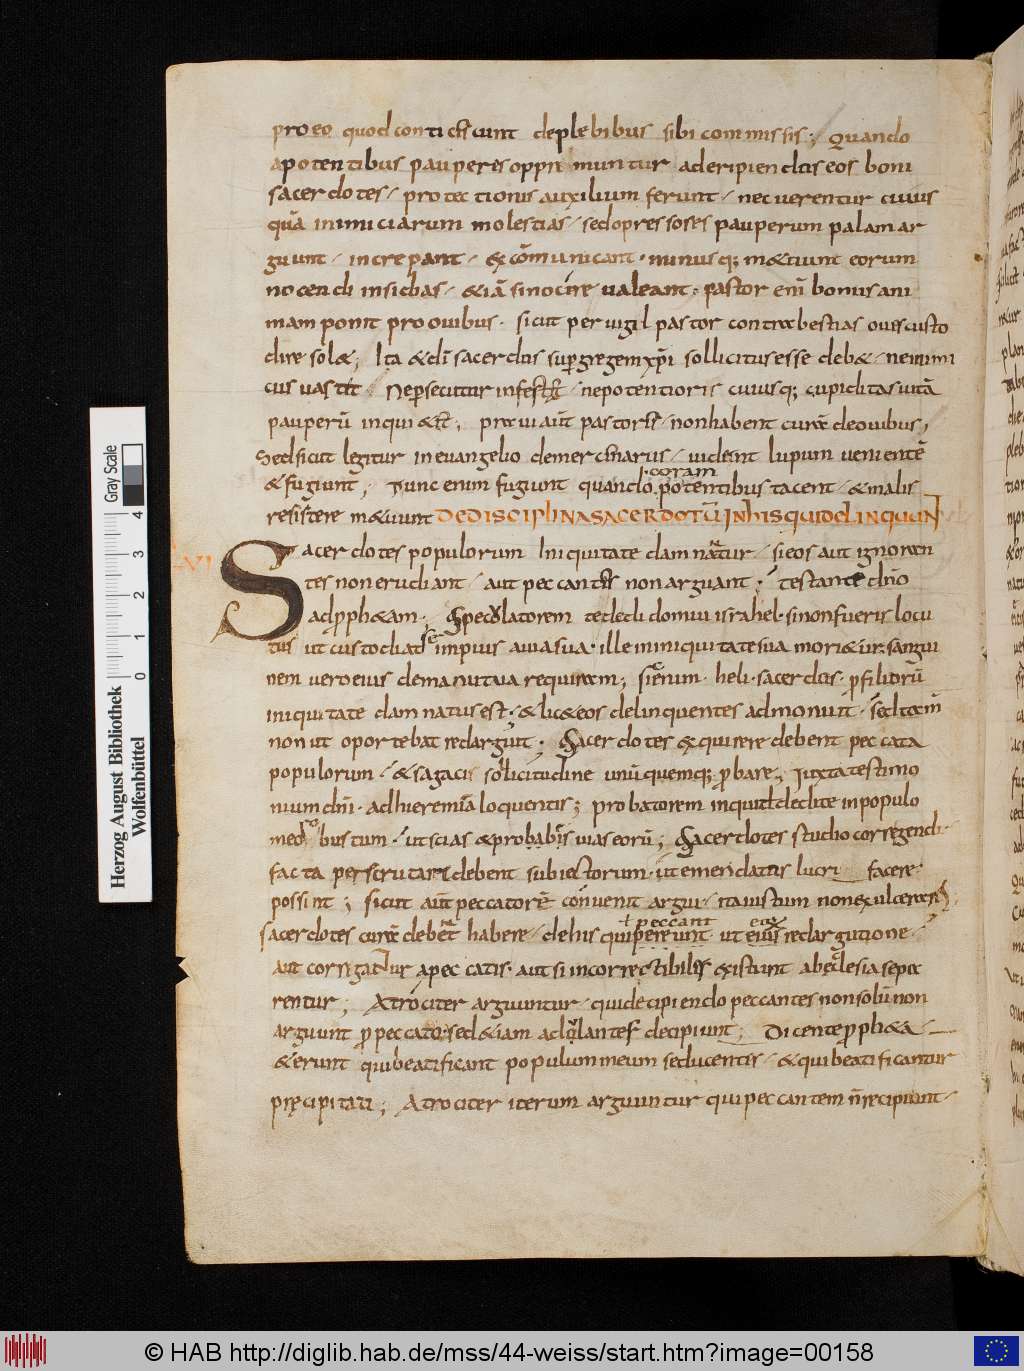 pro eo quod conticiscunt de plebibus sibi commissis; Quando
a potentibus pauperes oppri muntur ad eripiendos eos boni
sacerdotes protectionis auxilium ferunt nec verentur cuius
quā inimiciarum molestias sed opressoses pauperum palam ar
guunt increpant & cōmunicant minusq; m&uunt eorum
nocendi insidias &iā si nocere valeant. pastor enī bonus ani
mam ponit pro ovibus. sicut pervigil pastor contra bestias oves custo
dire sol&; Ita & dī sacerdos sup gregem xp̄i sollicitus esse deb& ne inimi
cus vast& Ne persecutur infest& ne potentioris cuiusq; cupiditas vitā
pauperū inqui&&; pravi aūt pastores non habent curā de ovibus;
Sed sicut legitur in evangelio de mercenariis vident lupum venientē
& fugiunt; Tunc enim fugiunt quando coram potentibus tacent & malis
resistere m&uunt DE DISCIPLINA SACERDOTŪ IN HIS QUI DELINQUUNT
XVI
Sacerdotes populorum Iniquitate damnatur si eos aut ignoran
tes non erudiant aut peccantes non arguant; testante dn̄o
ad pph&am. Speculatorem te dedi domui israhel. si non fueris locu
tus ut custodiat se impius a via sua. ille in iniquitate sua mori&ur. sangui
nem vero eius de manu tua requiram; Sic enim heli sacerdos p filiorū
iniquitate damnatus est. & lic& eos delinquentes admonuit. sed tam̄
non ut oportebat redarguit; Sacerdotes exquirere debent peccata
populorum & sagacis sollicitudine unūquemq; pbare; Iuxta testimo
nium dnī. ad hieremiā loquentis; probatorem inquit dedi te in populo
meo robustum. ut scias & probabis vias eorū; Sacerdotes studio corregendi
facta perscrutari debent subiectorum. ut emendatus lucri facere
possint; sicut aūt peccatorē convenit argui ita iustum non exulcerari.
sacerdotes curā debent habere de his qui perierunt ł peccant ut eius eos redargutione
aut corregantur a peccatis. aut si incorrectibiles existunt ab eclesia sepa
rentur; Atrociter arguuntur qui decipiendo peccantes non solū non
arguunt p peccato sed &iam adolantes decipiunt; Dicente pph&a
& erunt qui beatificant populum meum seducentis & qui beatificantur
pręcipitati; Atrociter iterum arguuntur qui peccantem n̄ recipiunt
Herzog August Bibliothek
Wolfenbüttel
0 1 2 3 4
Gray Scale
© HAB http://diglib.hab.de/mss/44-weiss/start.htm?image=00158